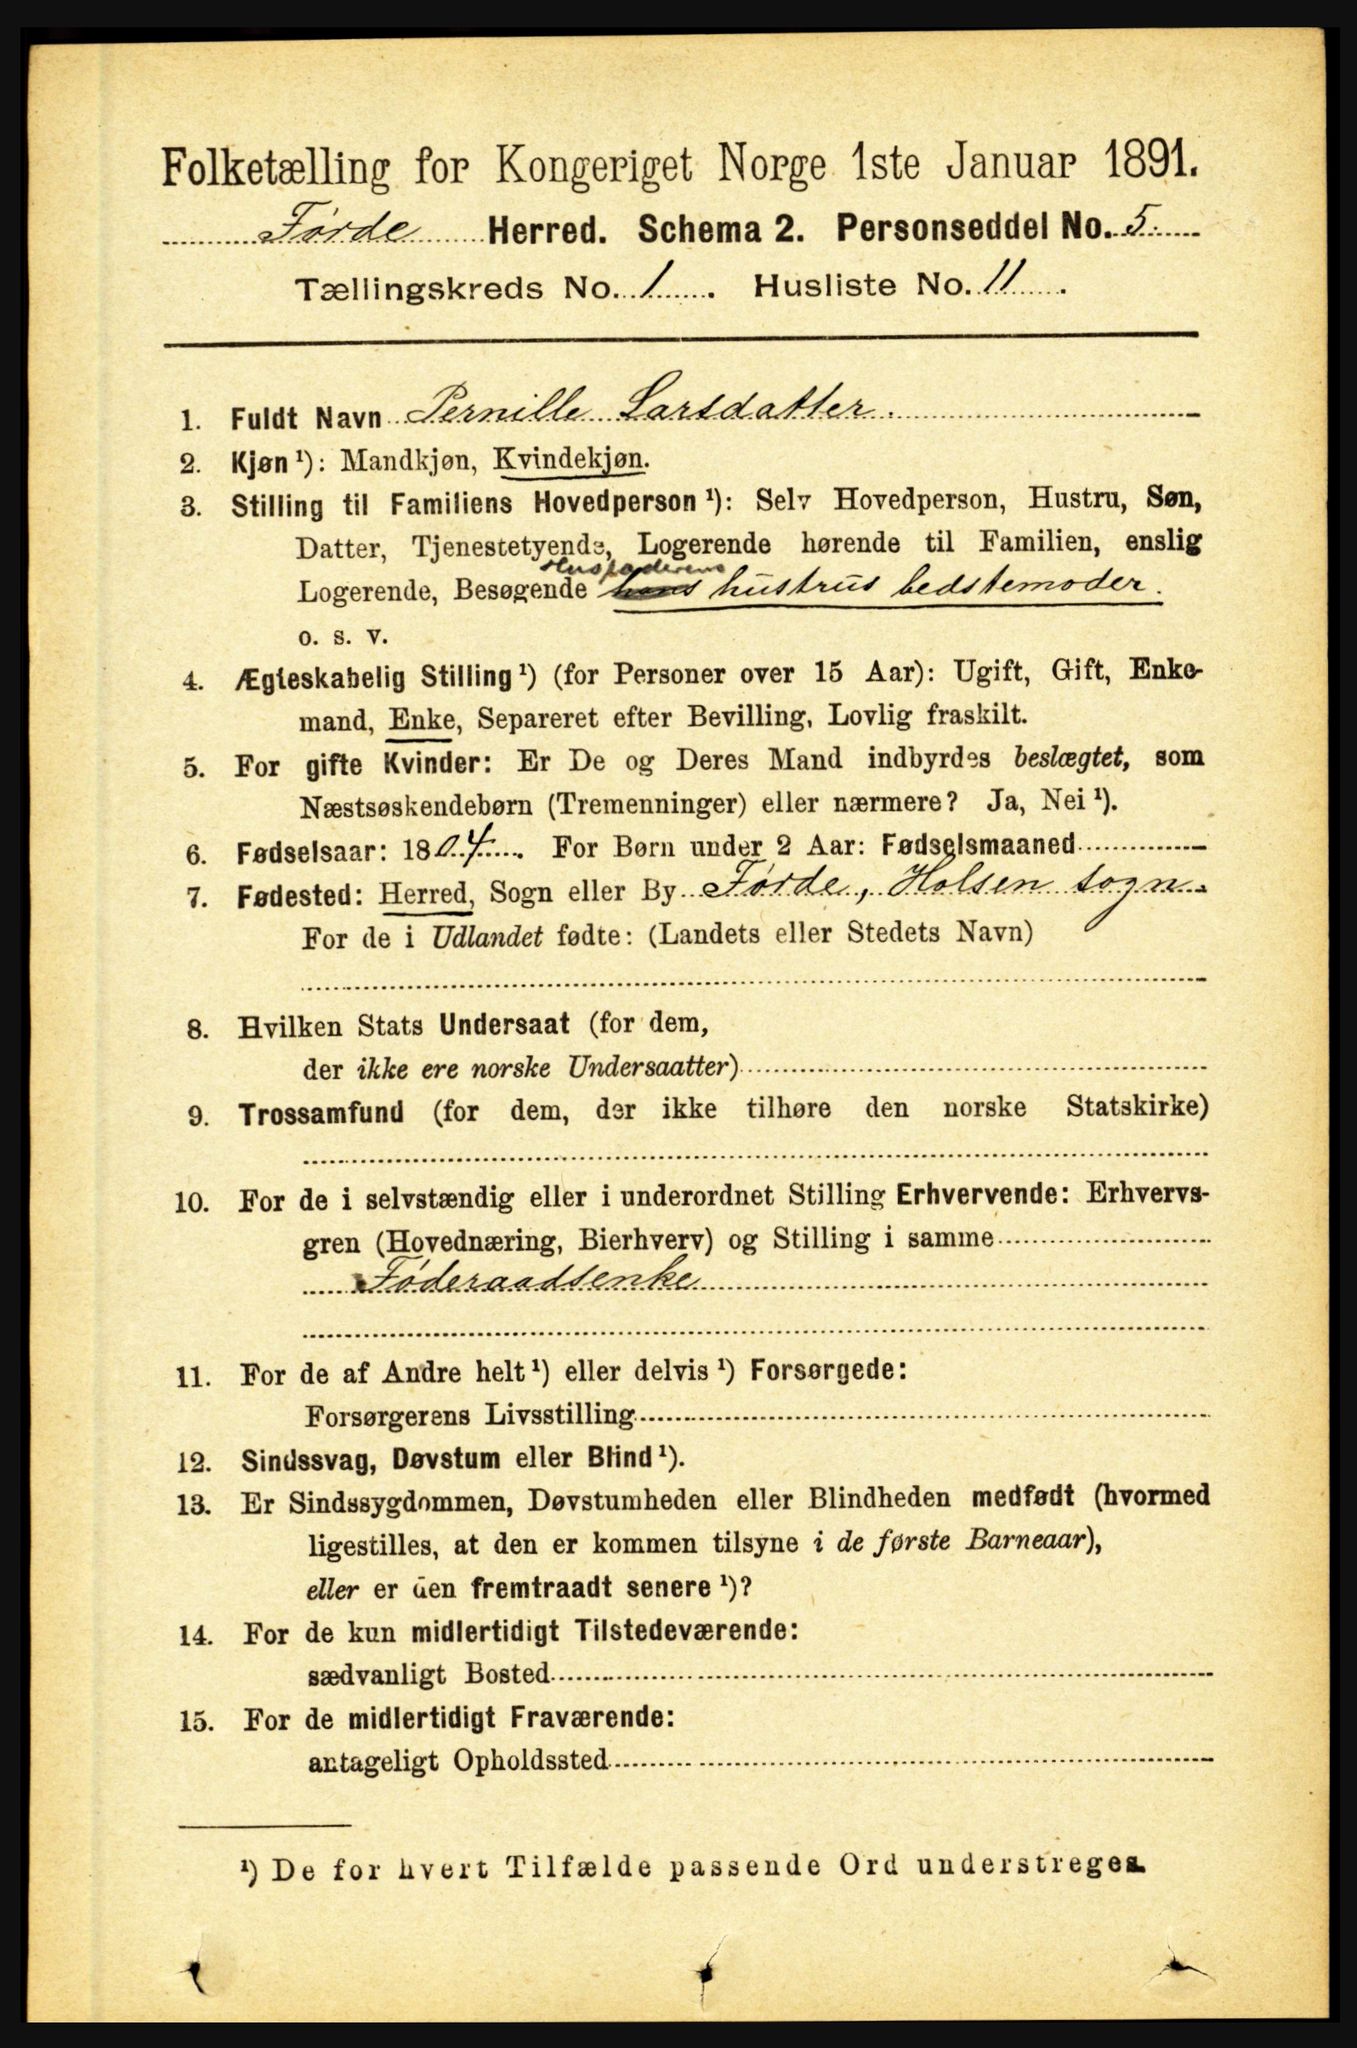 Folketælling for Kongeriget Norge 1ste Januar 1891.
Førde Herred. Schema 2. Personseddel No. 5.
Tællingskreds No. 1. Husliste No. 11.
1. Fuldt Navn Pernille Larsdatter.
2. Kjøn¹): Mandkjøn, Kvindekjøn.
3. Stilling til Familiens Hovedperson¹): Selv Hovedperson, Hustru, Søn,
Datter, Tjenestetyende, Logerende hørende til Familien, enslig
Husfaderens
Logerende, Besøgende hans hustrus bedstemoder.
o. s. v.
4. Ægteskabelig Stilling¹) (for Personer over 15 Aar): Ugift, Gift, Enke-
mand, Enke, Separeret efter Bevilling, Lovlig fraskilt.
5. For gifte Kvinder: Er De og Deres Mand indbyrdes beslægtet, som
Næstsøskendebørn (Tremenninger) eller nærmere? Ja, Nei¹).
6. Fødselsaar: 1804. For Børn under 2 Aar: Fødselsmaaned
7. Fødested: Herred, Sogn eller By Førde, Holsen sogn.
For de i Udlandet fødte: (Landets eller Stedets Navn)
8. Hvilken Stats Undersaat (for dem,
der ikke ere norske Undersaatter)
9. Trossamfund (for dem, der ikke tilhøre den norske Statskirke)
10. For de i selvstændig eller i underordnet Stilling Erhvervende: Erhvervs-
gren (Hovednæring, Bierhverv) og Stilling i samme
Føderaadsenke
11. For de af Andre helt¹) eller delvis¹) Forsørgede:
Forsørgerens Livsstilling
12. Sindssvag, Døvstum eller Blind¹).
13. Er Sindssygdommen, Døvstumheden eller Blindheden medfødt (hvormed
ligestilles, at den er kommen tilsyne i de første Barneaar),
eller er den fremtraadt senere¹)?
14. For de kun midlertidigt Tilstedeværende:
sædvanligt Bosted
15. For de midlertidigt Fraværende:
antageligt Opholdssted
¹) De for hvert Tilfælde passende Ord understreges.